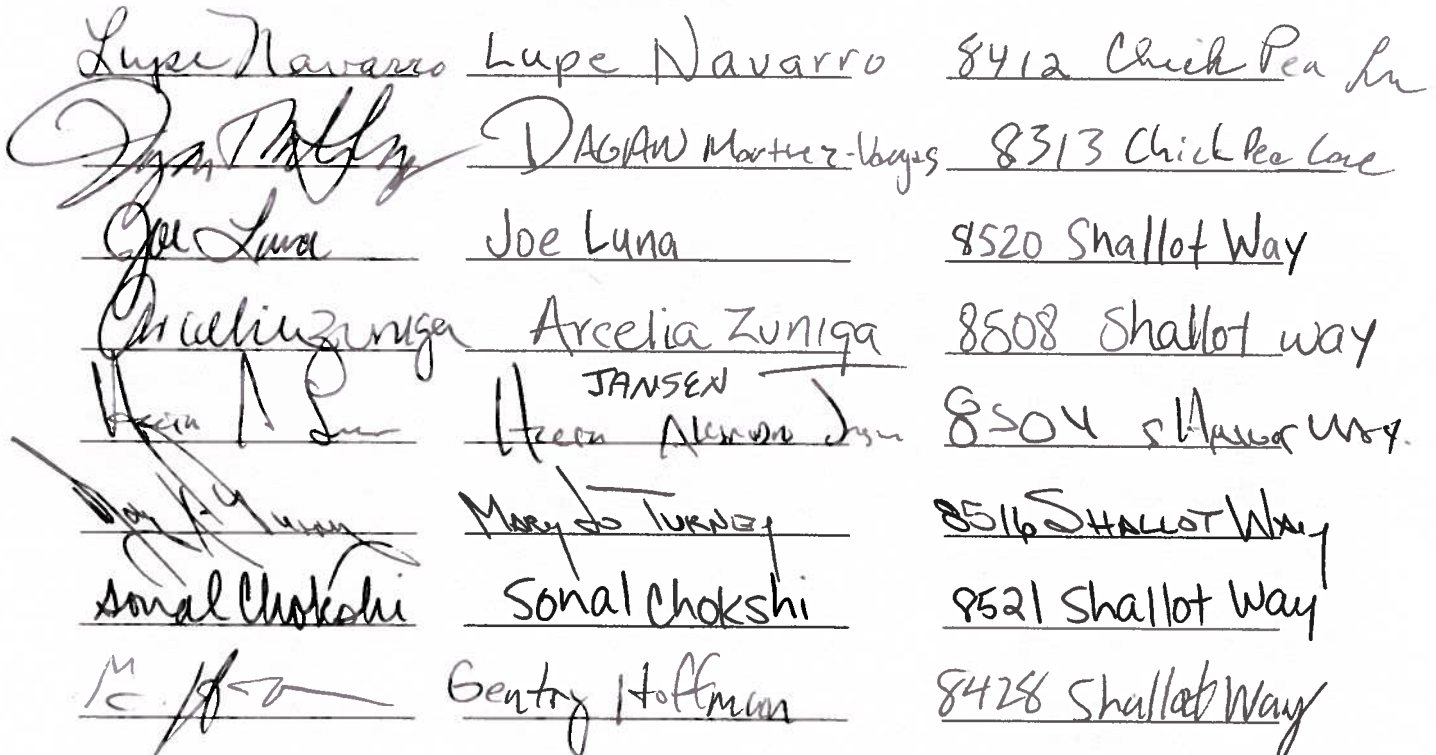 Lupe Navarro Lupe Navarro 8412 Chick Pea Ln
DAGAN Martinez-Vargas 8313 Chick Pea Lane
Joe Luna Joe Luna 8520 Shallot Way
Arcelia Zuniga Arcelia Zuniga 8508 Shallot way
JANSEN
8504
Mary Jo TURNEY 8516 SHALLOT WAY
Sonal Chokshi Sonal Chokshi 8521 Shallot Way
Gentry Hoffman 8428 Shallot Way